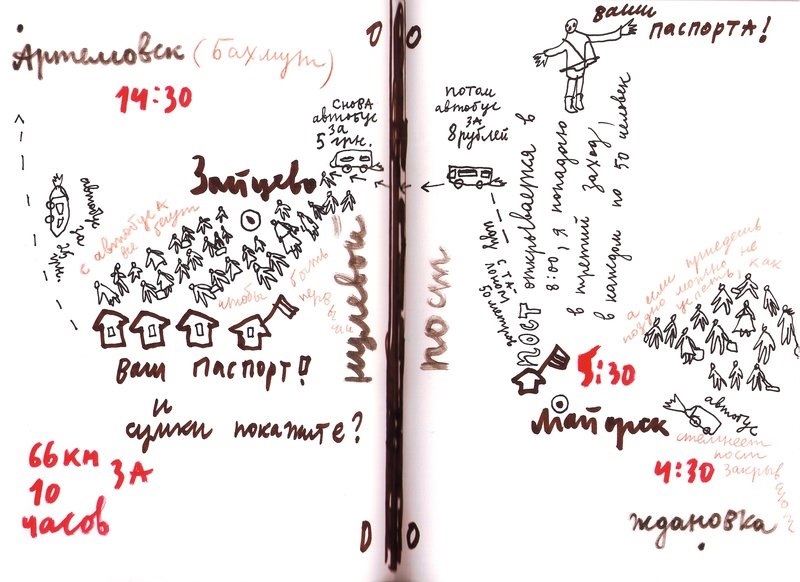 Артемовск (Бахмут)
14:30
снова
автобус
за
5 грн.
Зайцево
автобус
с автобуса
все бегут
чтобы быть
первыми
Ваш паспорт!
и
сумки покажите?
66 км
за
10
часов
нулевой
пост
потом
автобус
за
8 рублей
ваши
паспорта!
пост открывается в
8:00, я попадаю
в третий заход,
в каждом по 50 человек
50 метров
а если приедешь
поздно можно не
успеть, как
5:30
Майорск
автобус
4:30
стемнеет
пост
закрыв
Ждановка